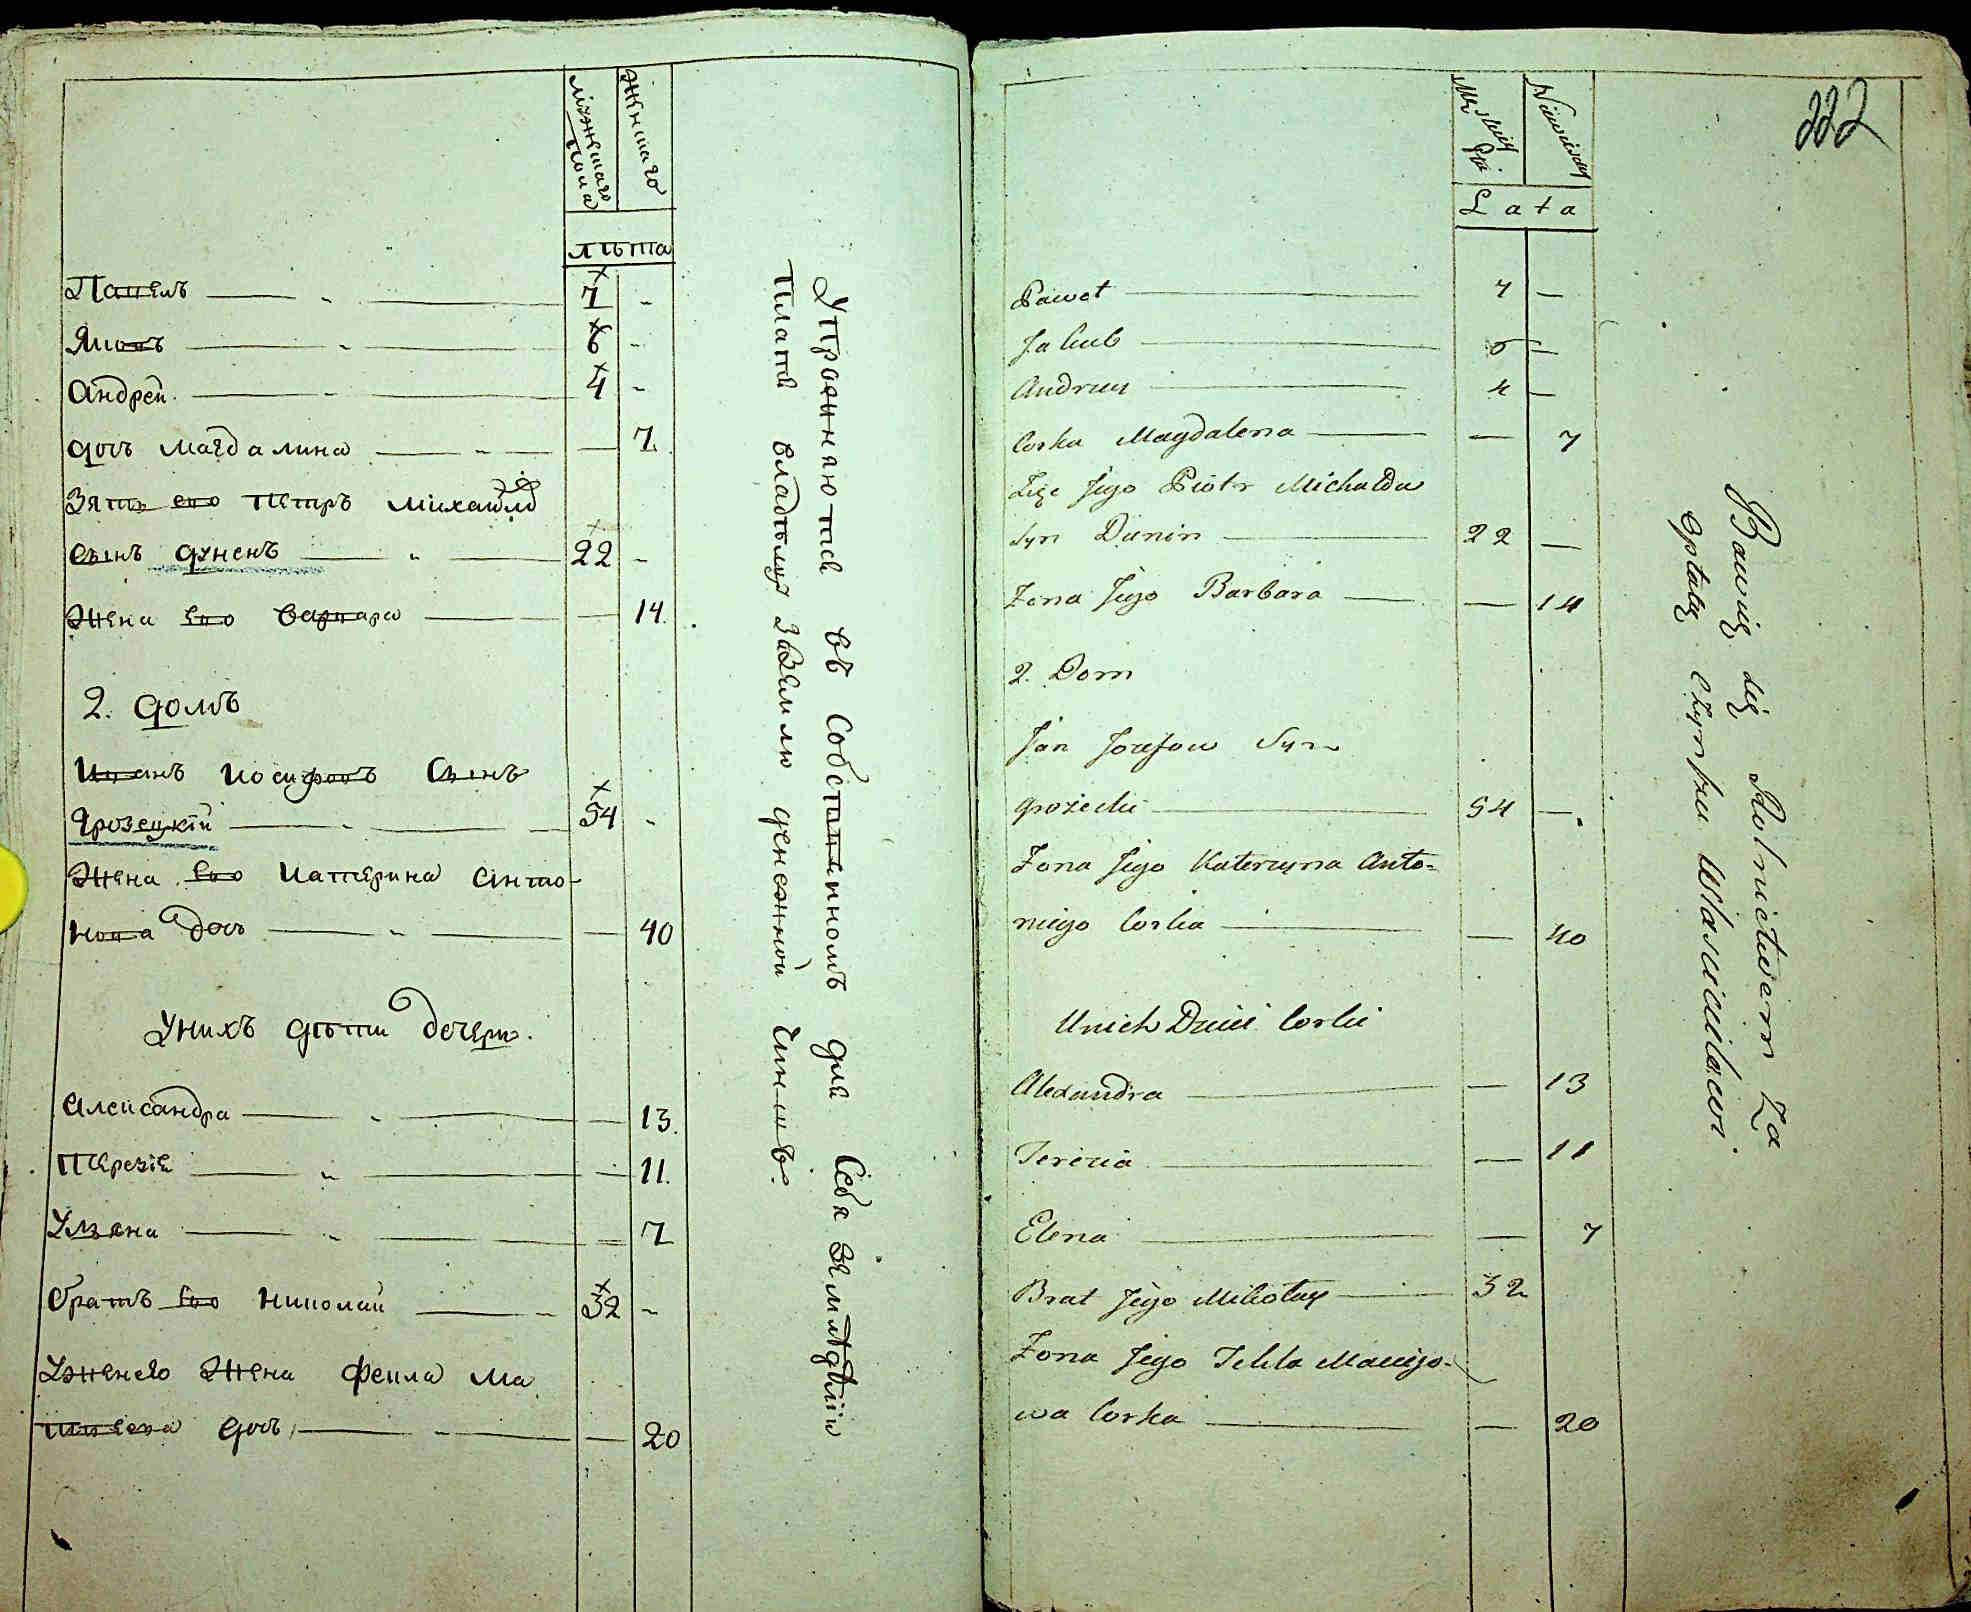 мужескаго пола
женскаго
лѣта
Павелъ — 7 -
Яковъ — 6 -
Андрей — 4 -
дочь Магдалина — 7
Зять его Петръ Михайло
сынъ Дуненъ — 22 -
Жена его Варвара — 14.
2. домъ
Иванъ Иосифовъ Сынъ
Грозецкій — 54 -
Жена его Катерина Анто-
нова дочь — 40
Унихъ дѣти дочери.
Александра — 13.
Терезіе — 11.
Ульяна — 7
братъ его Николай — 32 -
Уженево Жена Фекла Ма
тиевева дочь — 20
Упражняются въ собственномъ для себя земледѣліи
платя владѣльцу заземлю денежной чиншъ.
222
Męskiej Płci
Niewieściej
Lata
Paweł — 7 —
Jakub — 6 —
Andrzey — 4 —
Corka Magdalena — 7
Zięć Jego Piotr Michałów
Syn Dunin — 22 —
Żona Jego Barbara — 14
2. Dom
Jan Jozefow Syn
Grożecki — 54 —
Żona Jego Katerzyna Anto-
niego Corka — 40
Unich Dzieci Corki
Alexandra — 13
Terezia — 11
Elena — 7
Brat Jego Mikołay — 32
Żona Jego Tekla Macijo-
wa Corka — 20
Bawią się Rolnictwem Za
Opłatą Czynszu Włascicielowi.